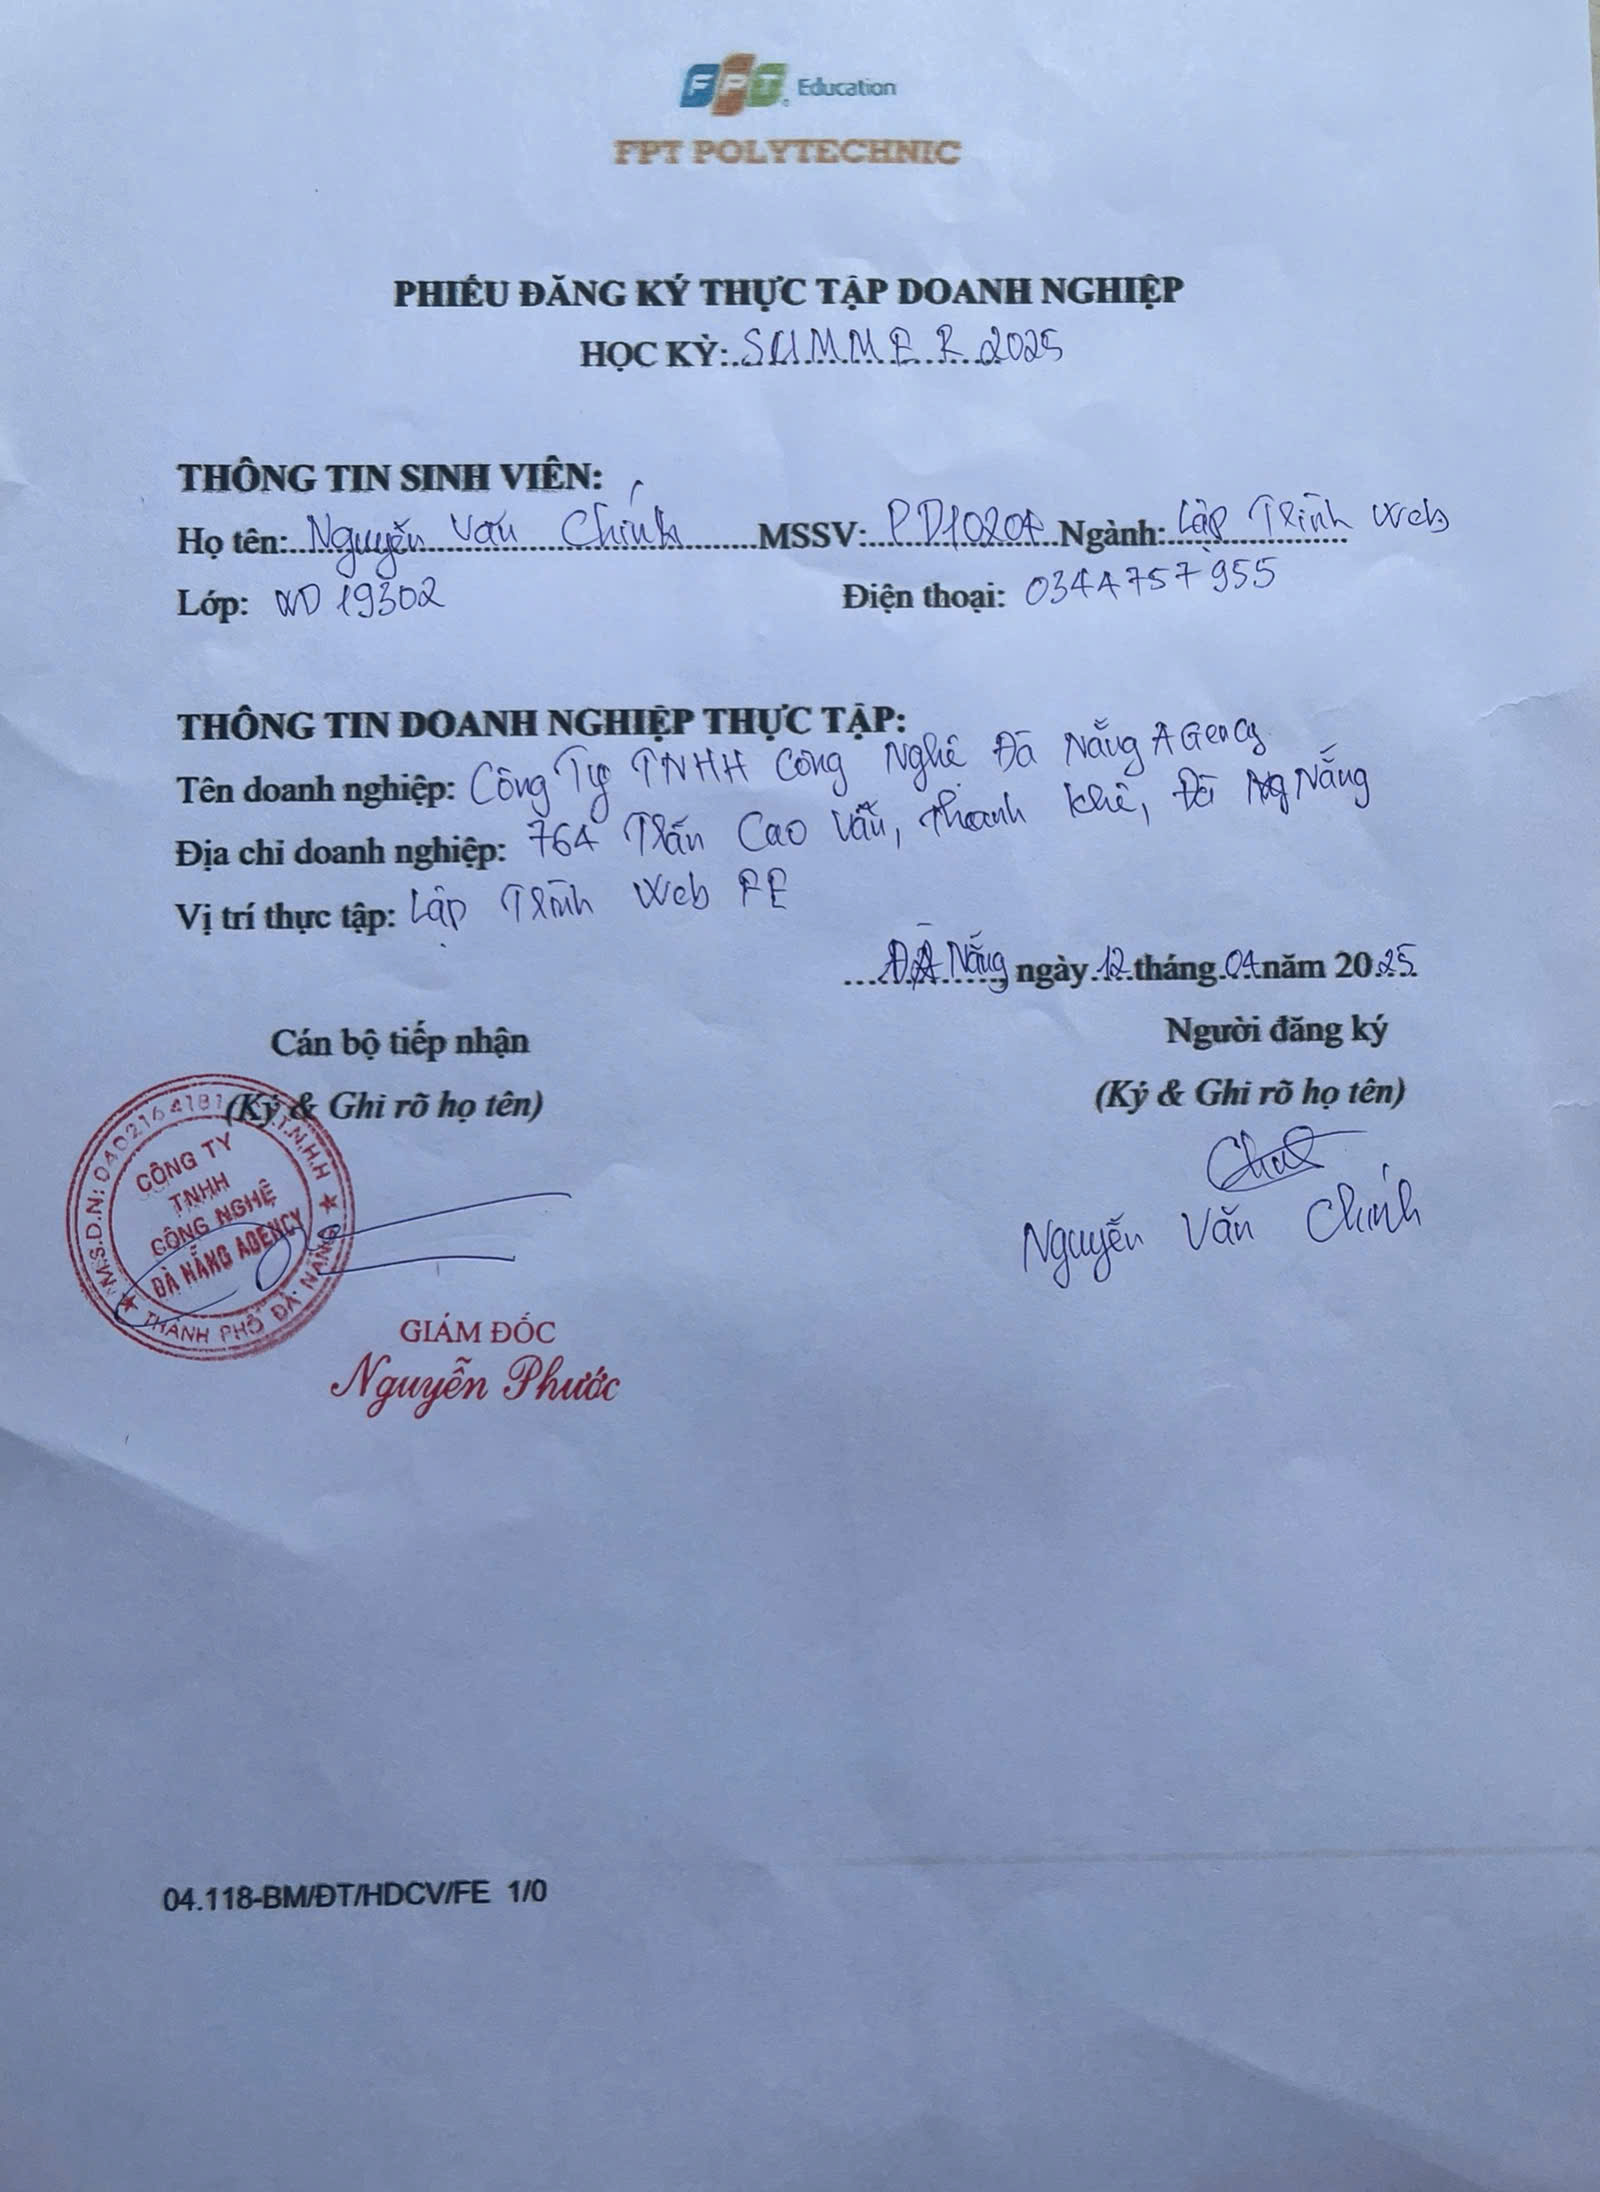 FPT Education
FPT POLYTECHNIC
PHIẾU ĐĂNG KÝ THỰC TẬP DOANH NGHIỆP
HỌC KỲ: SUMMER 2025
THÔNG TIN SINH VIÊN:
Họ tên: Nguyễn Văn Chính MSSV: Ngành: Lập Trình Web
Lớp: WD19302 Điện thoại: 0344757955
THÔNG TIN DOANH NGHIỆP THỰC TẬP:
Tên doanh nghiệp: Công Ty TNHH Công Nghệ Đà Nẵng AGency
Địa chỉ doanh nghiệp: 764 Trần Cao Vân, Thanh Khê, Đà Nẵng
Vị trí thực tập: Lập Trình Web FE
Đà Nẵng, ngày 12 tháng 04 năm 2025
Cán bộ tiếp nhận Người đăng ký
(Ký & Ghi rõ họ tên) (Ký & Ghi rõ họ tên)
M.S.D.N: 0402164181 T.N.H.H
CÔNG TY
TNHH
CÔNG NGHỆ
ĐÀ NẴNG AGENCY
THÀNH PHỐ ĐÀ NẴNG
Nguyễn Văn Chính
GIÁM ĐỐC
Nguyễn Phước
04.118-BM/ĐT/HDCV/FE 1/0